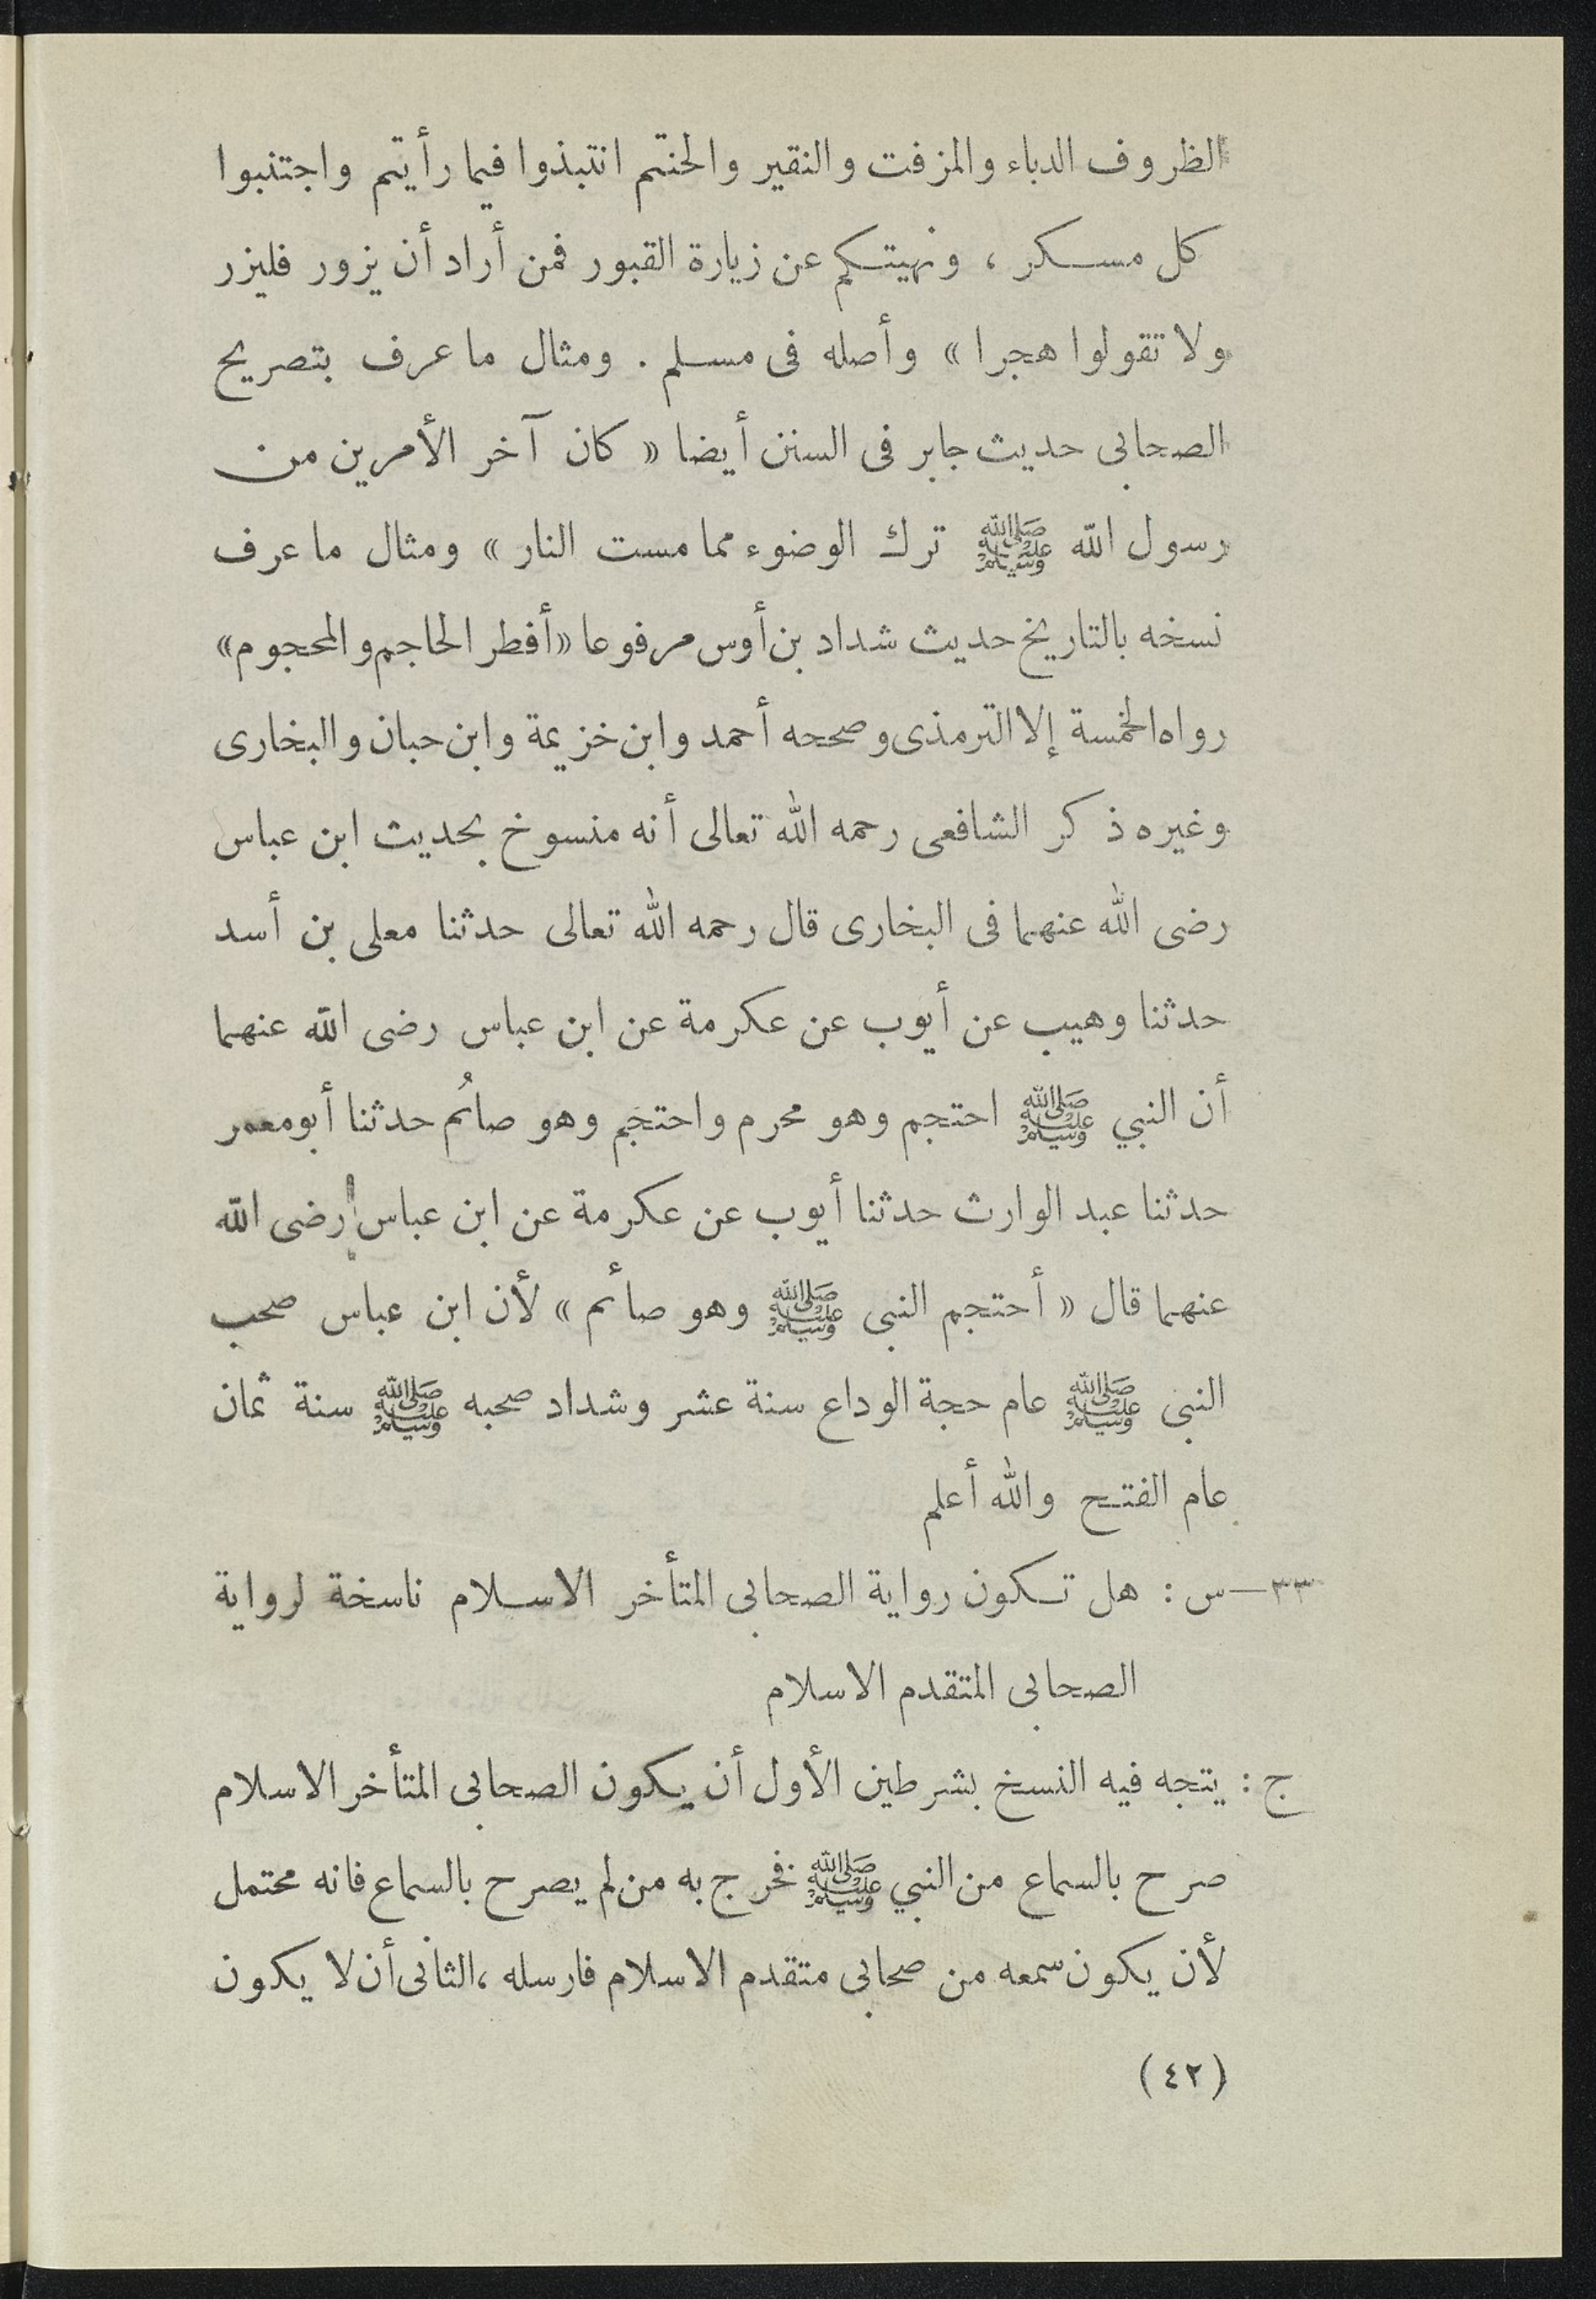 الظروف الدباء والمزفت والنقير والحنتم انتبذوا فيما رأيتم واجتنبوا
كل مسكر ، ونهيتكم عن زيارة القبور فمن أراد أن يزور فليزر
ولا تقولوا هجرا » وأصله فى مسلم . ومثال ما عرف بتصريح
الصحابى حديث جابر فى السنن أيضا « كان آخر الأمرين من
رسول الله ﷺ ترك الوضوء مما مست النار » ومثال ما عرف
نسخه بالتاريخ حديث شداد بن أوس مرفوعا «أفطر الحاجم والمحجوم»
رواه الخمسة إلا الترمذى وصححه أحمد وابن خزيمة وابن حبان والبخارى
وغيره ذكر الشافعى رحمه الله تعالى أنه منسوخ بحديث ابن عباس
رضى الله عنهما فى البخارى قال رحمه الله تعالى حدثنا معلى بن أسد
حدثنا وهيب عن أيوب عن عكرمة عن ابن عباس رضى الله عنهما
أن النبي ﷺ احتجم وهو محرم واحتجم وهو صائم حدثنا أبو معمر
حدثنا عبد الوارث حدثنا أيوب عن عكرمة عن ابن عباس رضى الله
عنهما قال « أحتجم النبى ﷺ وهو صائم » لأن ابن عباس صحب
النبى ﷺ عام حجة الوداع سنة عشر وشداد صحبه ﷺ سنة ثمان
عام الفتح والله أعلم
٣٣ — س : هل تكون رواية الصحابى المتأخر الاسلام ناسخة لرواية
الصحابى المتقدم الاسلام
ج : يتجه فيه النسخ بشرطين الأول أن يكون الصحابى المتأخر الاسلام
صرح بالسماع من النبي ﷺ فخرج به من لم يصرح بالسماع فانه محتمل
لأن يكون سمعه من صحابى متقدم الاسلام فارسله ، الثانى أن لا يكون
(٤٢)